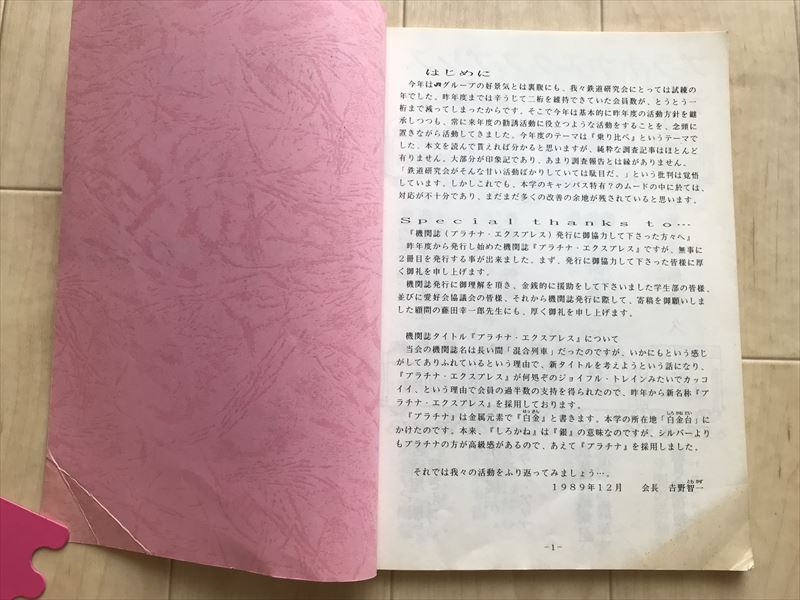 はじめに
今年はJRグループの好景気とは裏腹にも、我々鉄道研究会にとっては試練の
年でした。昨年度までは辛うじて二桁を維持できていた会員数が、とうとう一
桁まで減ってしまったからです。そこで今年は基本的に昨年度の活動方針を継
承しつつも、常に来年度の勧誘活動に役立つような活動をすることを、念頭に
置きながら活動してきました。今年度のテーマは『乗り比べ』というテーマで
した。本文を読んで貰えれば分かると思いますが、純粋な調査記事はほとんど
有りません。大部分が印象記であり、あまり調査報告とは縁がありません。
「鉄道研究会がそんな甘い活動ばかりしていては駄目だ。」という批判は覚悟
しています。しかしこれでも、本学のキャンパス特有？のムードの中に於ては、
対応が不十分であり、まだまだ多くの改善の余地が残されていると思います。
Special thanks to…
『機関誌（プラチナ・エクスプレス）発行に御協力して下さった方々へ』
昨年度から発行し始めた機関誌『プラチナ・エクスプレス』ですが、無事に
２冊目を発行する事が出来ました。まず、発行に御協力下さった皆様に厚
く御礼を申し上げます。
機関誌発行に御理解を頂き、金銭的に援助をして下さいました学生部の皆様、
並びに愛好会協議会の皆様、それから機関誌発行に際して、寄稿を御願いしま
した顧問の藤田幸一郎先生にも、厚く御礼を申し上げます。
機関誌タイトル『プラチナ・エクスプレス』について
当会の機関誌名は長い間「混合列車」だったのですが、いかにもという感じ
がしてありふれているという理由で、新タイトルを考えようという話になり、
『プラチナ・エクスプレス』が何処ぞのジョイフル・トレインみたいでカッコ
イイ、という理由で会員の過半数の支持を得られたので、昨年から新名称『プ
ラチナ・エクスプレス』を採用しております。
『プラチナ』は金属元素で『白金』と書きます。本学の所在地「白金台」に
かけたのです。本来、『しろかね』は『銀』の意味なのですが、シルバーより
もプラチナの方が高級感があるので、あえて『プラチナ』を採用しました。
それでは我々の活動をふり返ってみましょう…。
１９８９年１２月　会長　吉野智一
－１－